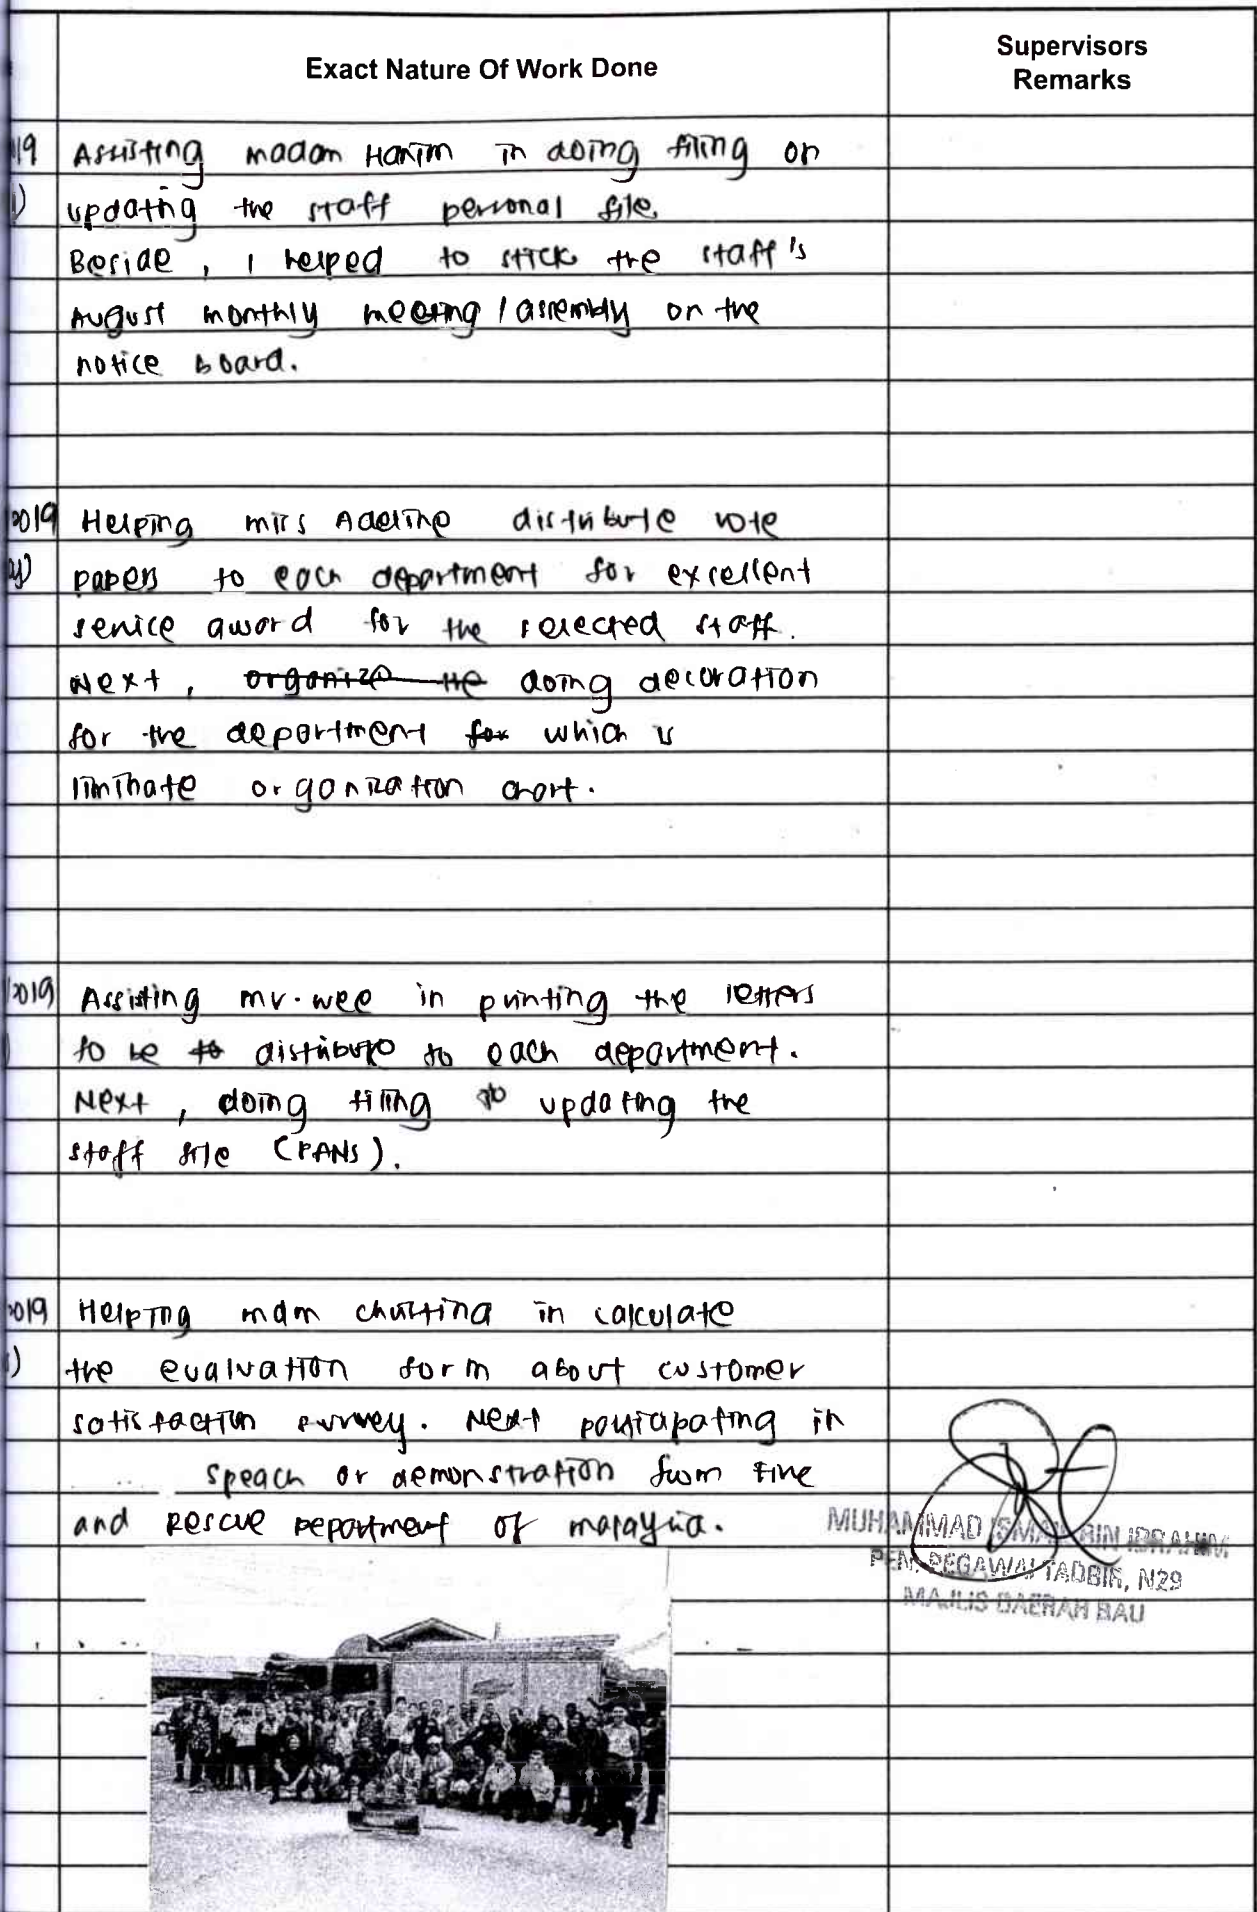 Exact Nature Of Work Done
Supervisors
Remarks
19 Assisting madam Hanim in doing filing on
updating the staff personal file.
Beside, I helped to stick the staff's
August monthly meeting / assembly on the
notice board.
2019 Helping miss Adeline distribute vote
papers to each department for excellent
service award for the selected staff.
Next, organize the doing decoration
for the department for which is
liminate organization chart.
2019 Assisting mr. wee in printing the letters
to be to distribute to each department.
Next, doing filing updating the
staff file (PANS).
2019 Helping mdm in calculate
the evaluation form about customer
satisfaction survey. Next participating in
speach or demonstration from Fire
and Rescue Department of malaysia.
MUHAMMAD ISMAIL BIN IBRAHIM
PEN. PEGAWAI TADBIR, N29
MAJLIS DAERAH BAU